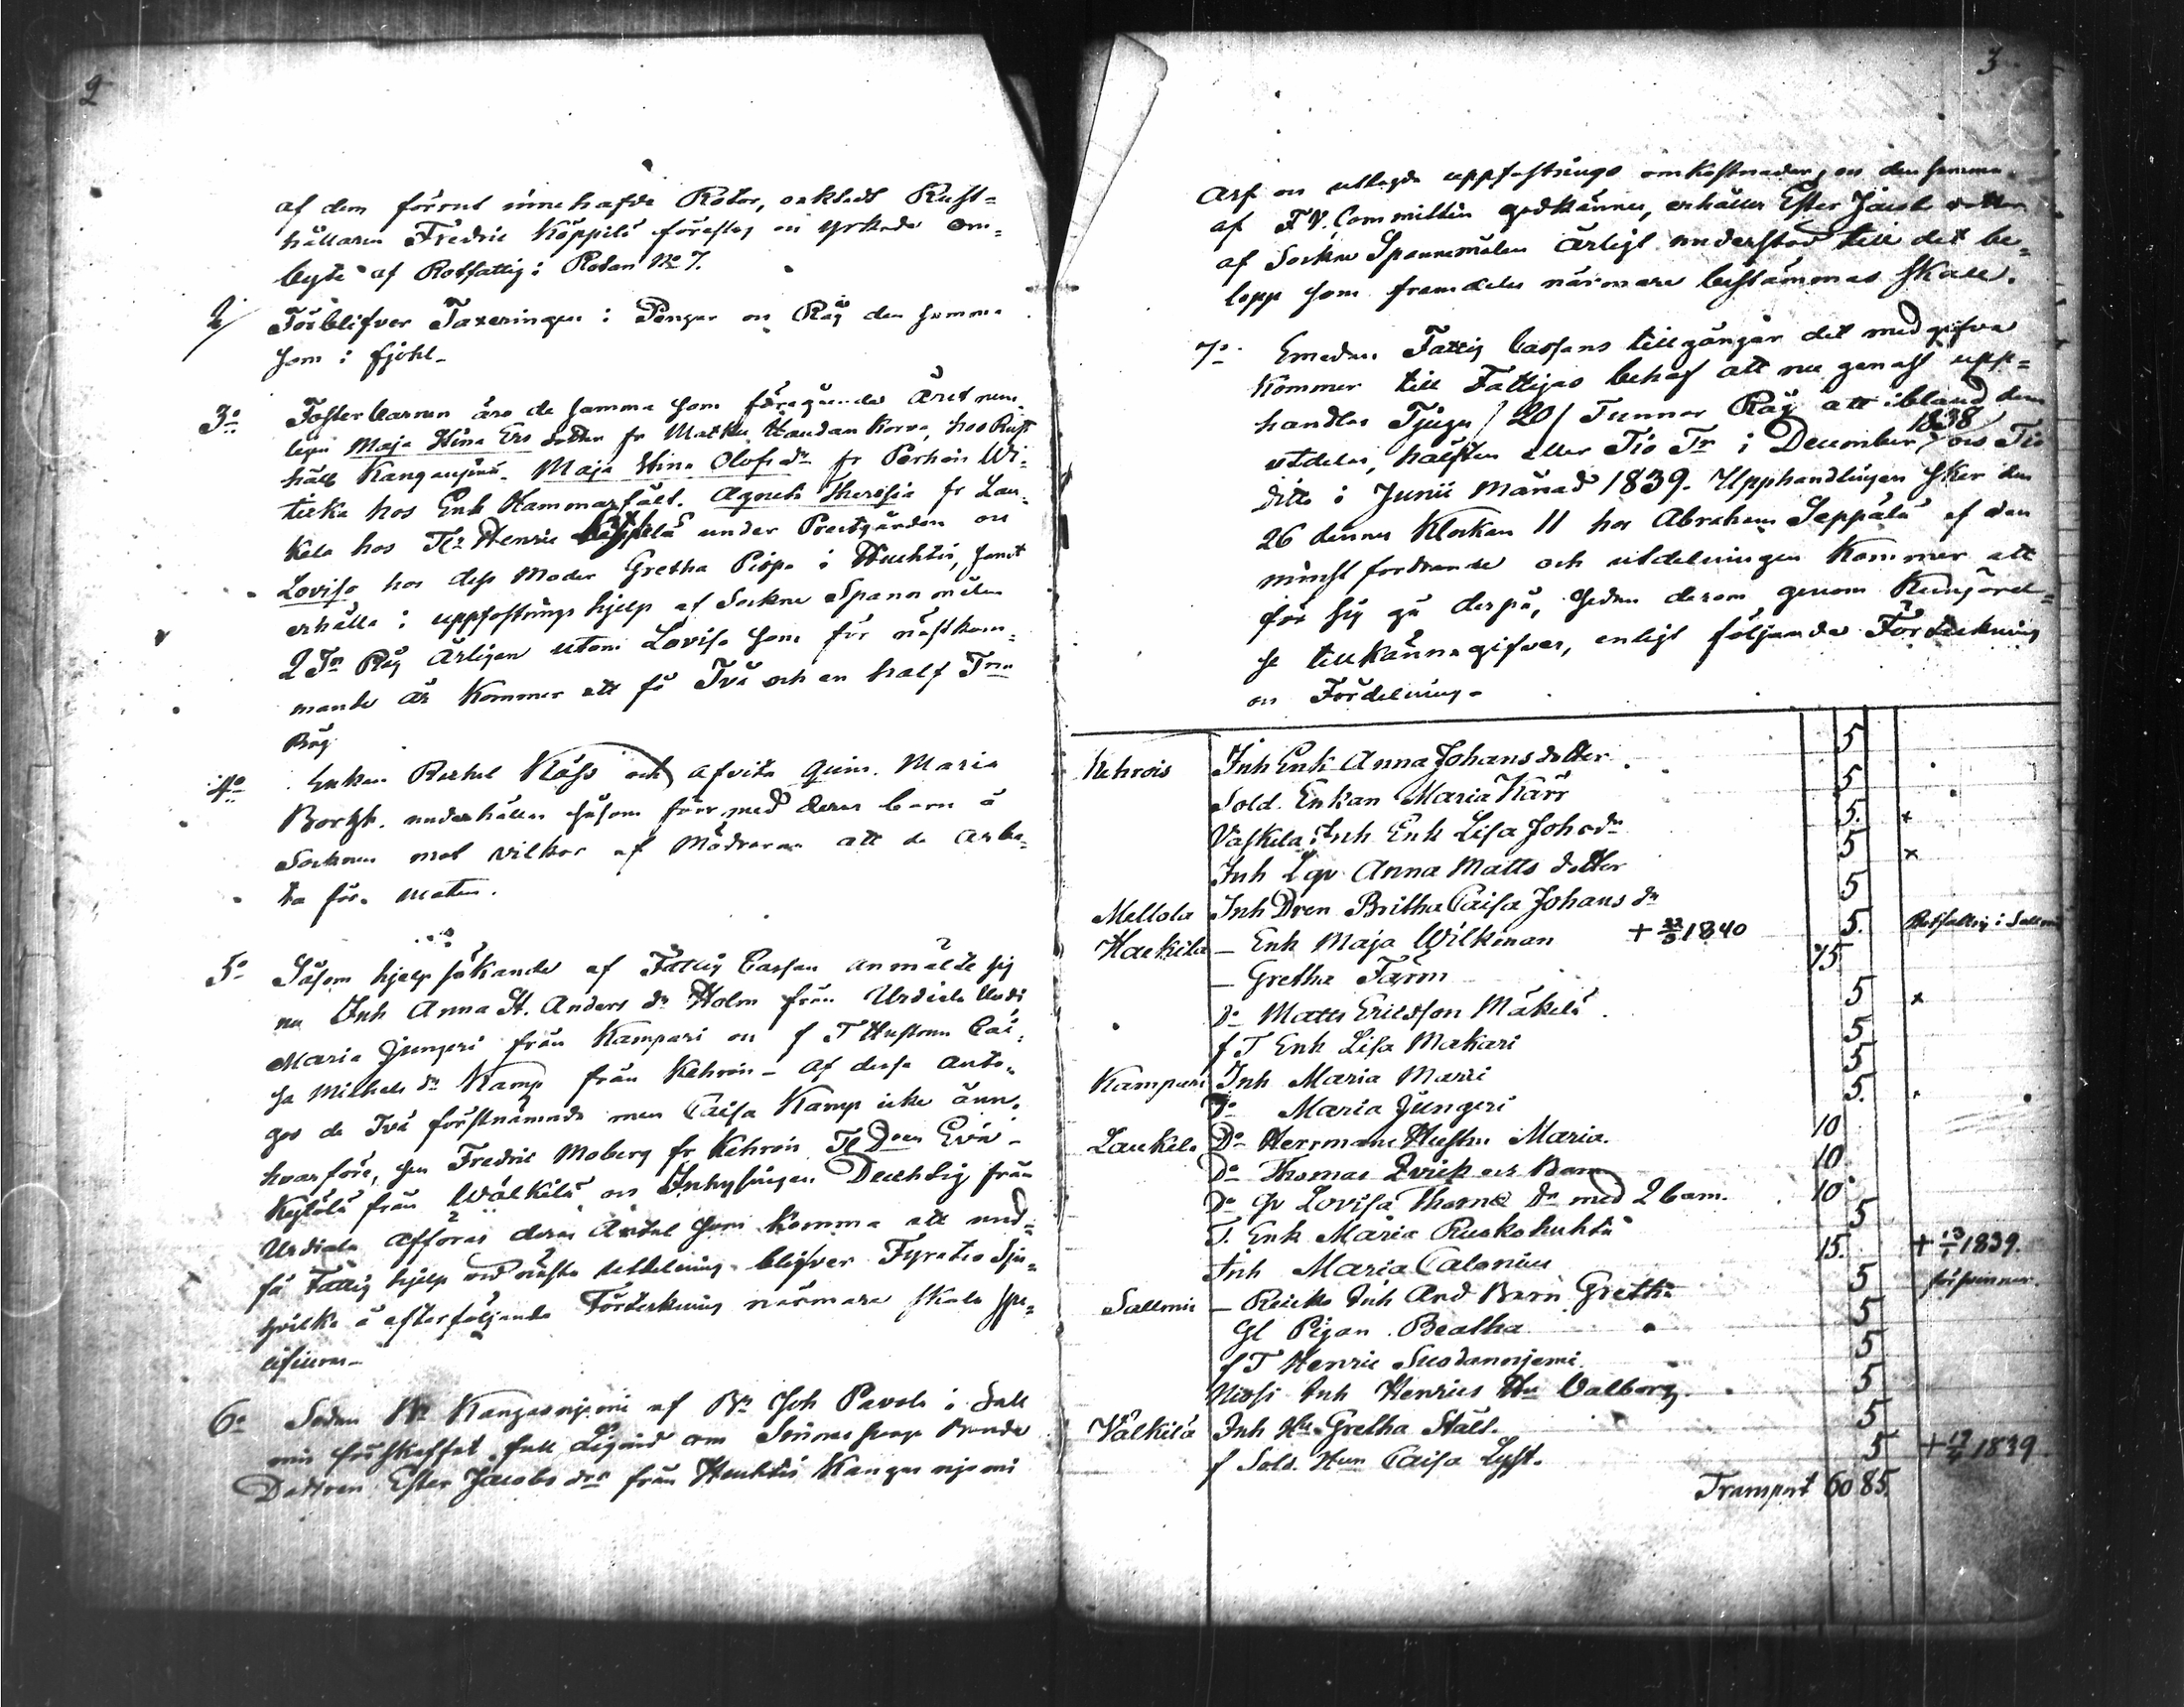 2
af dem förut innehafde Rotor, enkladt Rust=
hållaren Fredric Köppilä förestog en yrkade om=
byte af Rotfattig i Rotan No 7.
2/ Förblifver Taxeringen i Pengar oc Råg den samma
som i fjohl-
3o Fosterbarnen äro de samma som föregående året nem-
ligen Maja Stina Ers dotter fr Matku Haudankorva, hos Rust
håll. Kangasniemi. Maja Stina Olofs dr fr Perhein Wi-
ticka hos Enk Hammarfält. Agneta Theresia fr Lau-
kela hos Tr Henric under Prestgården oc
Lovisa hos dess Moder Gretha Piopo i Huhtis, samt
erhålla i uppfostrings hjelp af Sockne Spannmålen
2 Tr Råg årligen utom Lovisa som för nästkom-
mande år kommer att få Två och en half Tnr
Råg
4o Enkan Rachel Kåhs och afvita qvin. Maria
Borgh. underhållas såsom förr med deras barn å
Socknen mot vilkor af Mödrarne att de arbe-
ta för maten.
5o Såsom hjelpsökande af Fattig Cassan anmälte sig
nu Inh Anna St. Anders dr Holm från Urdiala
Maria Jungeri från Kampari oc f T Hustrun Cai-
sa Michels dr Kamp från Kehrois - af dessa anto-
gos de Två förstnämnde men Caisa Kamp icke änn.
hvarföre, sen Fredric Moberg fr Kehrois, Tl Dren Eva
Kylölä från Wälkilä oc Inhysingen från
Urdiala afföras deras Antal som komma att und-
få Fattig hjelp vid nästa utdelning blifver Fyratio Sju,
hvilka å efterföljande Förteckning närmare skola spe-
cificeras-
6o Sedan Bn Kangasniemi af Bn Joh Pavola i Sall
mis förskaffat full om
Dottren Ester Jacobs dr från Huhtis Kangasniemi
3
arf oc utlagde uppfostrings omkostnader, oc den samma
af F.V. Committén godkännes, erhåller Ester Jacobs dotter
af Sockne Spannmålen årligt understöd till det be=
lopp som framdeles närmare bestämmas skall.
7o Emedan Fattig Cassans tillgångar det medgifva
kommer till Fattigas behof att nu genast upp=
handlas Tjugu /20/ Tunnor Råg att ibland dem
utdelas, hälften eller Tio Tr i December 1838 oc Tio
ditto i Junii Månad 1839. Upphandlingen sker den
26 dennes Klockan 11 hos Abraham Seppälä af den
minst fordrande och utdelningen kommer att
för sig gå derpå, sedan derom genom Kungörel=
se tillkännagifves, enligt följande Förteckning
oc Fördelning-
Kehrois Inh Enk Anna Johansdotter 5
Sold. Enkan Maria Kärr 5
Valkila Inh Enk Lisa Johsdr 5. x
Inh Anna Matts dotter 5 x
Mellola Inh Dren Britha Caisa Johans dr 5
Haekila - Enk Maja Wilkman + 22/3 1840 5. Rotfattig i Sallmi
- Gretha Färm 15
Do Matts Ericsson Mäkelä 5 x
f T Enk Lisa Makari 5
Kampari Inh Maria Marri 5
Do Maria Jungeri 5.
Laukela Do Herrmans Hustru Maria. 10
Do Thomas Qvick oc Barn 10
Do qv Lovisa Thoms dr med 2 barn. 10
T. Enk Maria Ruskohuhta 5
Inh Maria Calonius 15. + 13/1 1839.
Sallmis - Reicko Inh And Barn Gretha 5 försvinner
Gl Pigan Beatha 5
f T Henric Susdanniemi 5
Niossi Inh Henrics Hu Valborg. 5
Välkilä Inh Hu Gretha Ståll. 5
f Sold. Hun Caisa Lyst. 5 + 17/4 1839
Transport 60 85.